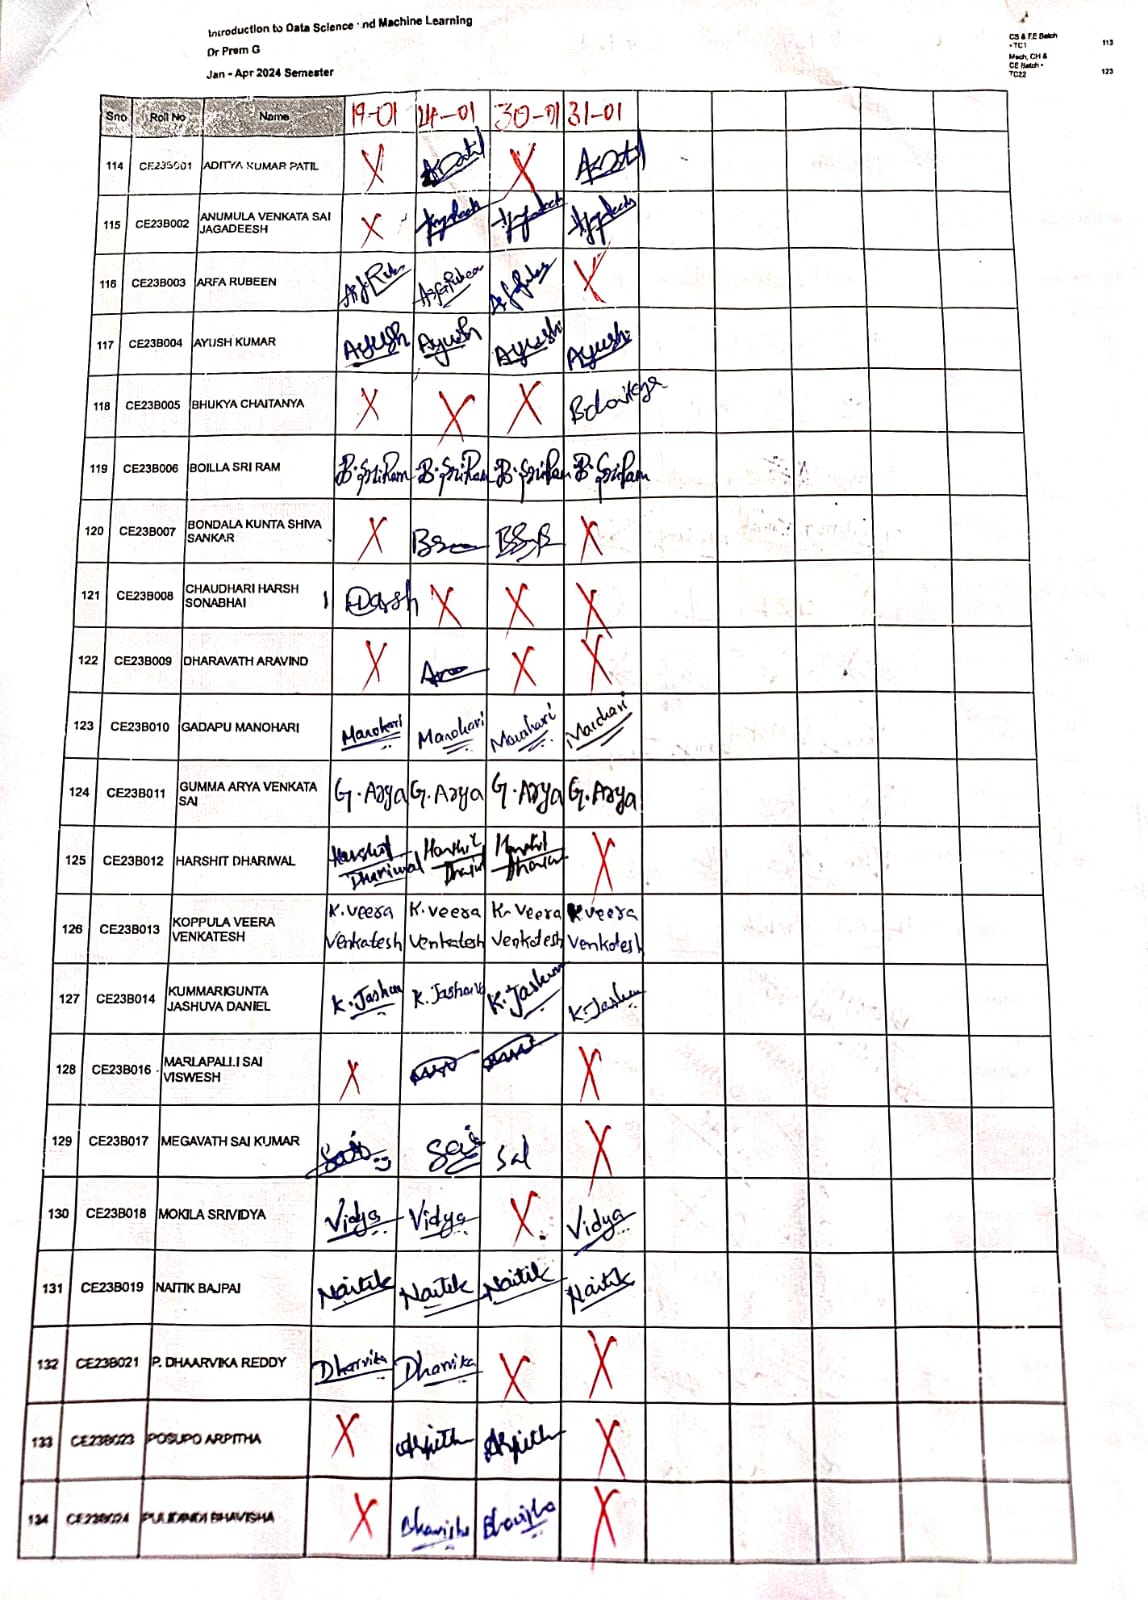 Introduction to Data Science and Machine Learning
Dr Prem G
Jan - Apr 2024 Semester
CS & FE Batch
- TC1 113
Mech, CH &
CE Batch -
TC22 123
Sno Roll No Name 19-01 24-01 30-01 31-01
114 CE23B001 ADITYA KUMAR PATIL X X
115 CE23B002 ANUMULA VENKATA SAI
JAGADEESH X
116 CE23B003 ARFA RUBEEN X
117 CE23B004 AYUSH KUMAR Ayush Ayush Ayush Ayush
118 CE23B005 BHUKYA CHAITANYA X X X
119 CE23B006 BOILLA SRI RAM B.SriRam B.SriRam B.SriRam B.SriRam
120 CE23B007 BONDALA KUNTA SHIVA
SANKAR X X
121 CE23B008 CHAUDHARI HARSH
SONABHAI X X X
122 CE23B009 DHARAVATH ARAVIND X X X
123 CE23B010 GADAPU MANOHARI Manohari Manohari Manohari Manohari
124 CE23B011 GUMMA ARYA VENKATA
SAI G.Arya G.Arya G.Arya G.Arya
125 CE23B012 HARSHIT DHARIWAL Harshit Dhariwal X
126 CE23B013 KOPPULA VEERA
VENKATESH K.veera K.veera K.Veera K.veera
Venkatesh Venkatesh Venkatesh Venkatesh
127 CE23B014 KUMMARIGUNTA
JASHUVA DANIEL K.Jashu K.Jashuva K.Jashuva K.Jashu
128 CE23B016 MARLAPALLI SAI
VISWESH X X
129 CE23B017 MEGAVATH SAI KUMAR Sai Sai X
130 CE23B018 MOKILA SRIVIDYA Vidya Vidya X Vidya
131 CE23B019 NAITIK BAJPAI Naitik Naitik Naitik Naitik
132 CE23B021 P. DHAARVIKA REDDY Dharvika Dharvika X X
133 CE23B023 POSUPO ARPITHA X Arpith Arpith X
134 CE23B024 PULIDINDI BHAVISHA X Bhavisha Bhavisha X